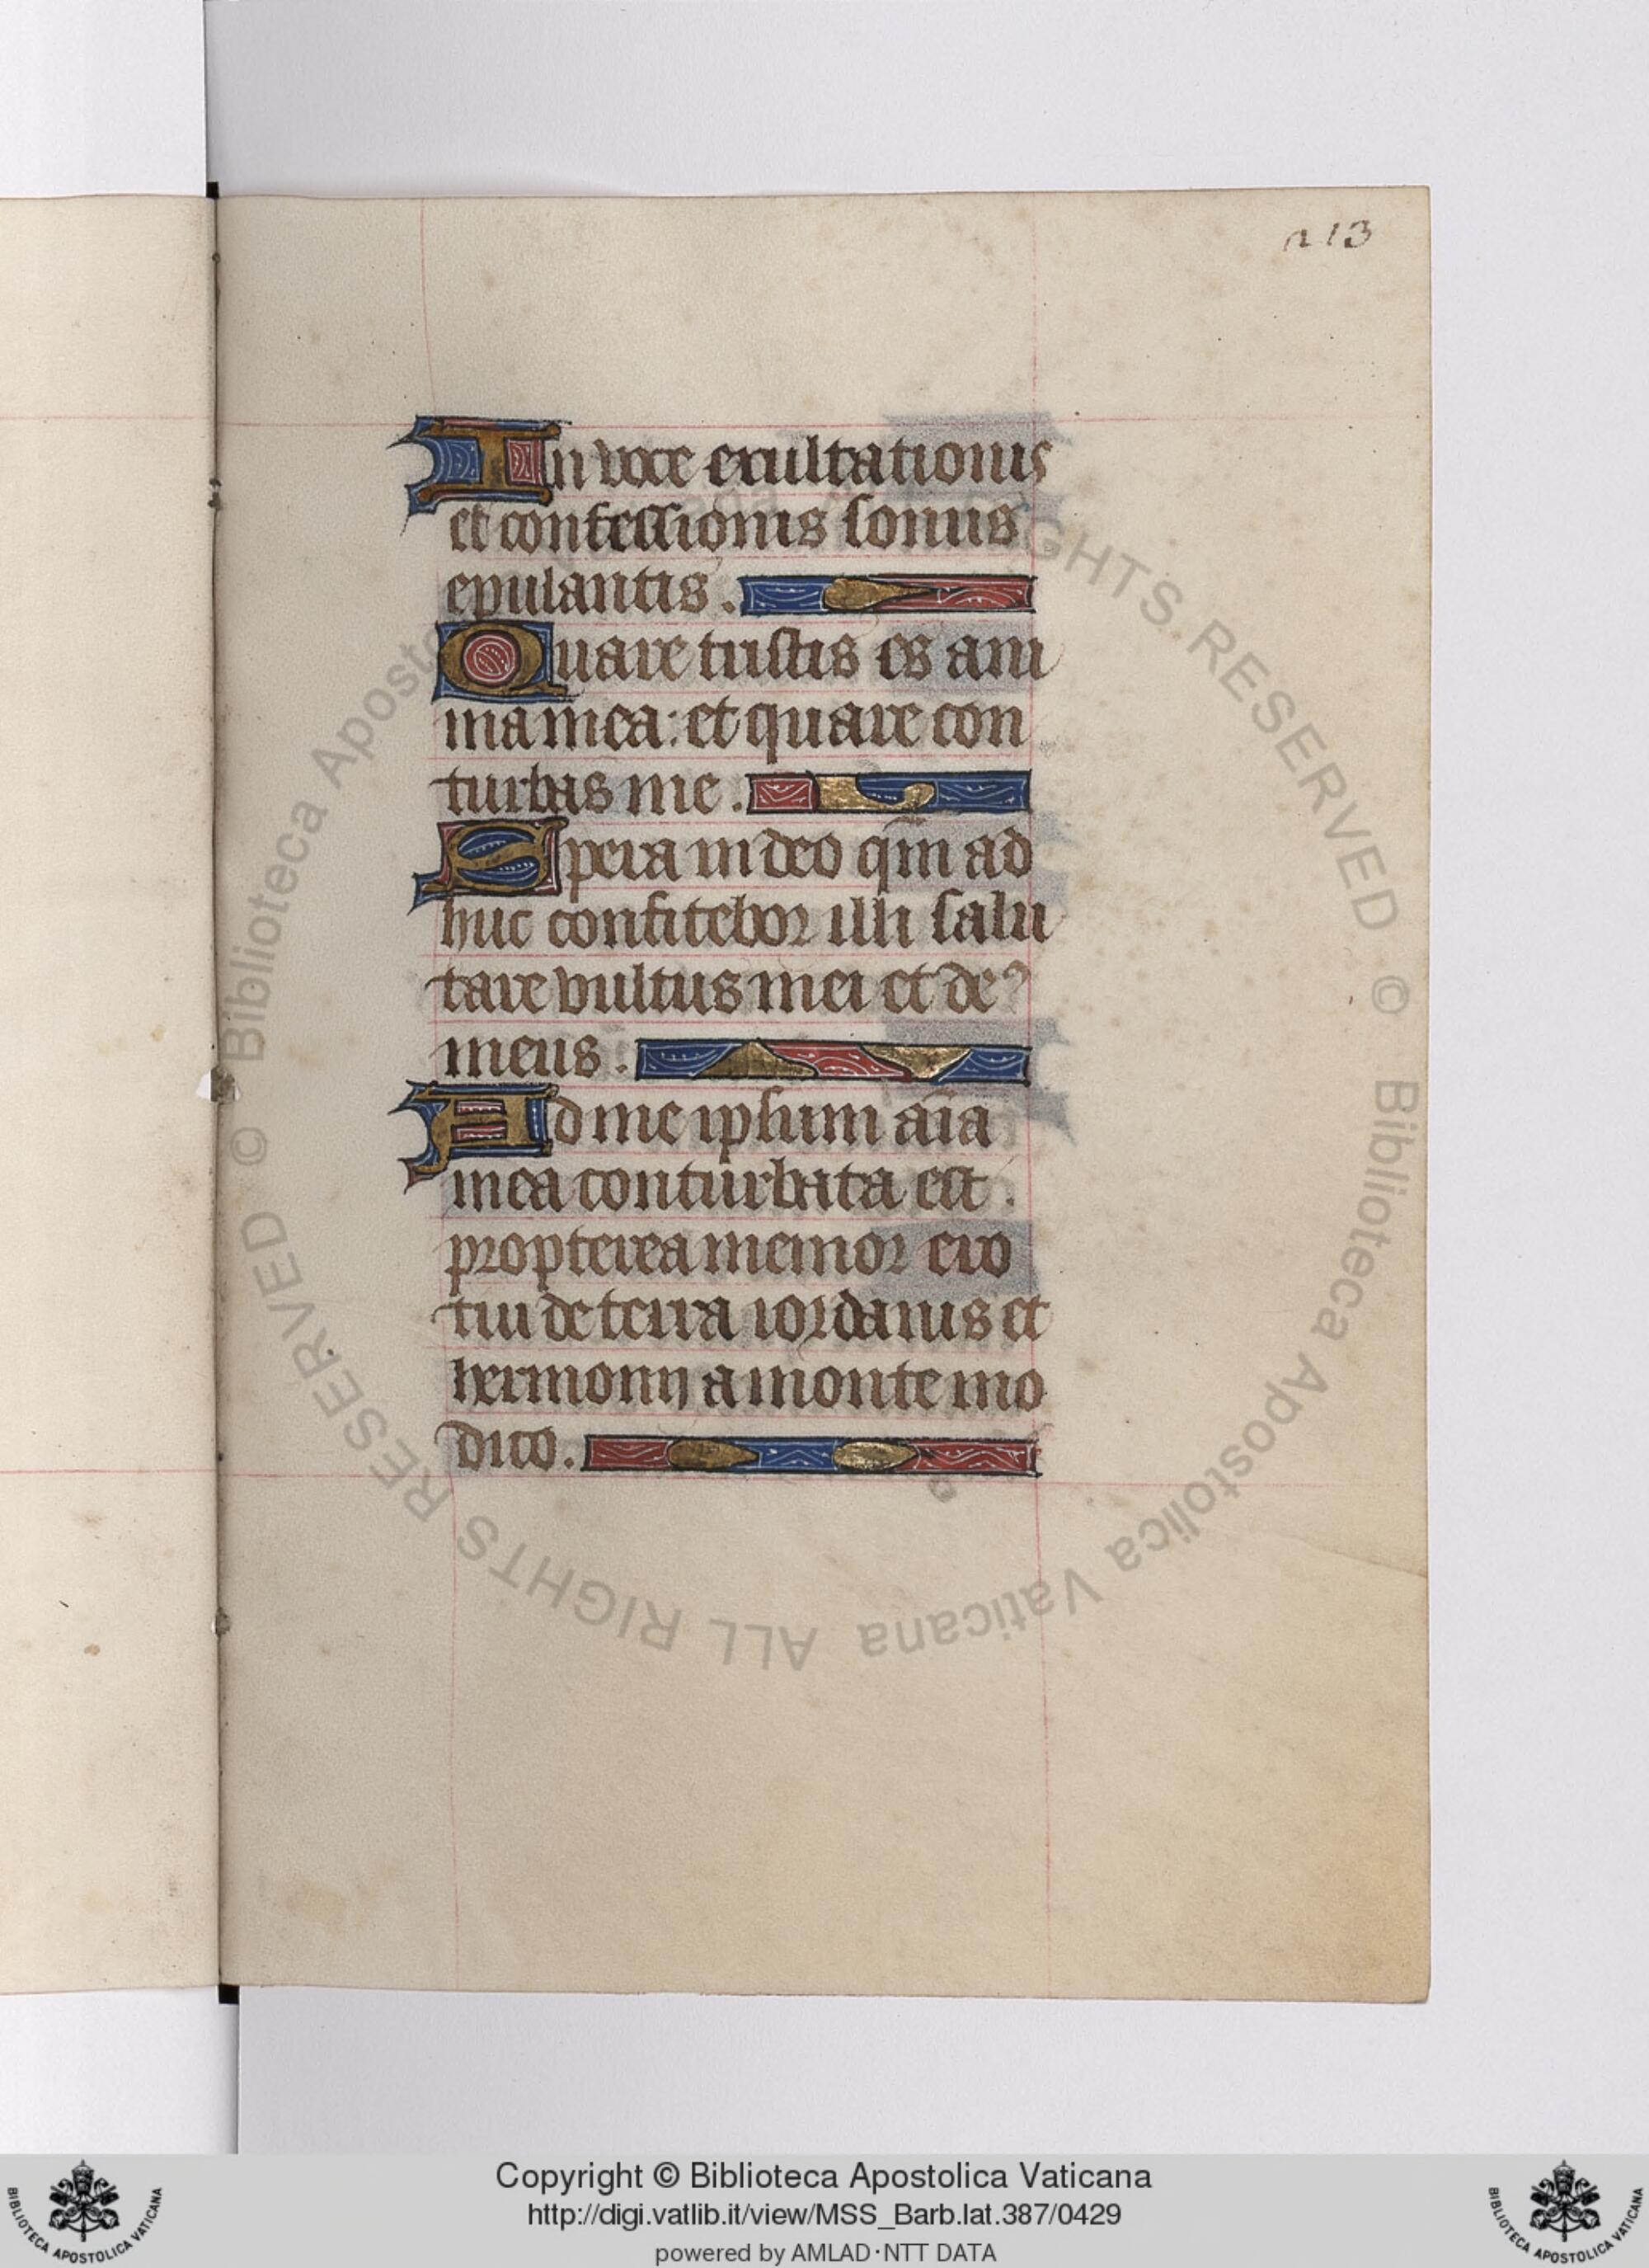 213
In voce exultationis
et confessionis sonus
epulantis.
Quare tristis es ani
ma mea: et quare con
turbas me.
Spera in deo qm̄ ad
huc confitebor illi salu
tare vultus mei et deꝰ
meus.
Ad me ipsum aīa
mea conturbata est.
propterea memor ero
tui de terra iordanis et
hermonij a monte mo
dico.
© Biblioteca Apostolica Vaticana ALL RIGHTS RESERVED
© Biblioteca Apostolica Vaticana ALL RIGHTS RESERVED
Copyright © Biblioteca Apostolica Vaticana
http://digi.vatlib.it/view/MSS_Barb.lat.387/0429
powered by AMLAD·NTT DATA
BIBLIOTECA APOSTOLICA VATICANA
BIBLIOTECA APOSTOLICA VATICANA